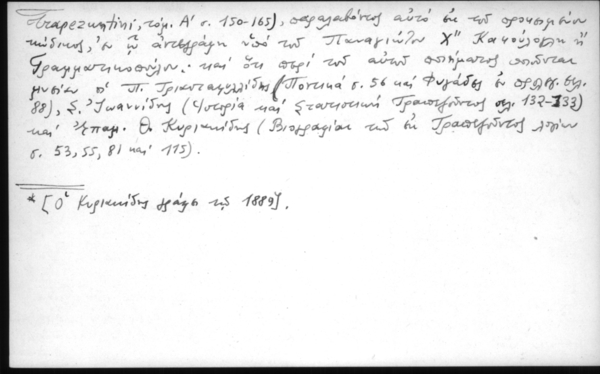 Trapezuntini, τόμ. Α' σ. 150-165), παραλαβόντος αὐτό ἐκ τοῦ προκειμένου
κώδικος, ἐν ᾧ ἀντεγράφη ὑπό τοῦ Παναγιώτου Χ'' Καπούλογλη ἤ
Γραμματικοπούλου· καί ὅτι περί τοῦ αὐτοῦ ποιήματος ποιοῦνται
μνείαν ὁ Π. Τριανταφυλλίδης (Ποντικά σ. 56 καί Φυγάδες ἐν προλεγ. σελ.
88), Σ. Ἰωαννίδης (Ἱστορία καί Στατιστική Τραπεζοῦντος σελ. 132-133)
καί Ἐπαμ. Θ. Κυριακίδης (Βιογραφίαι τῶν ἐκ Τραπεζοῦντος λογίων
σ. 53, 55, 81 καί 115).
* [Ὁ Κυριακίδης γράφει τῷ 1889].